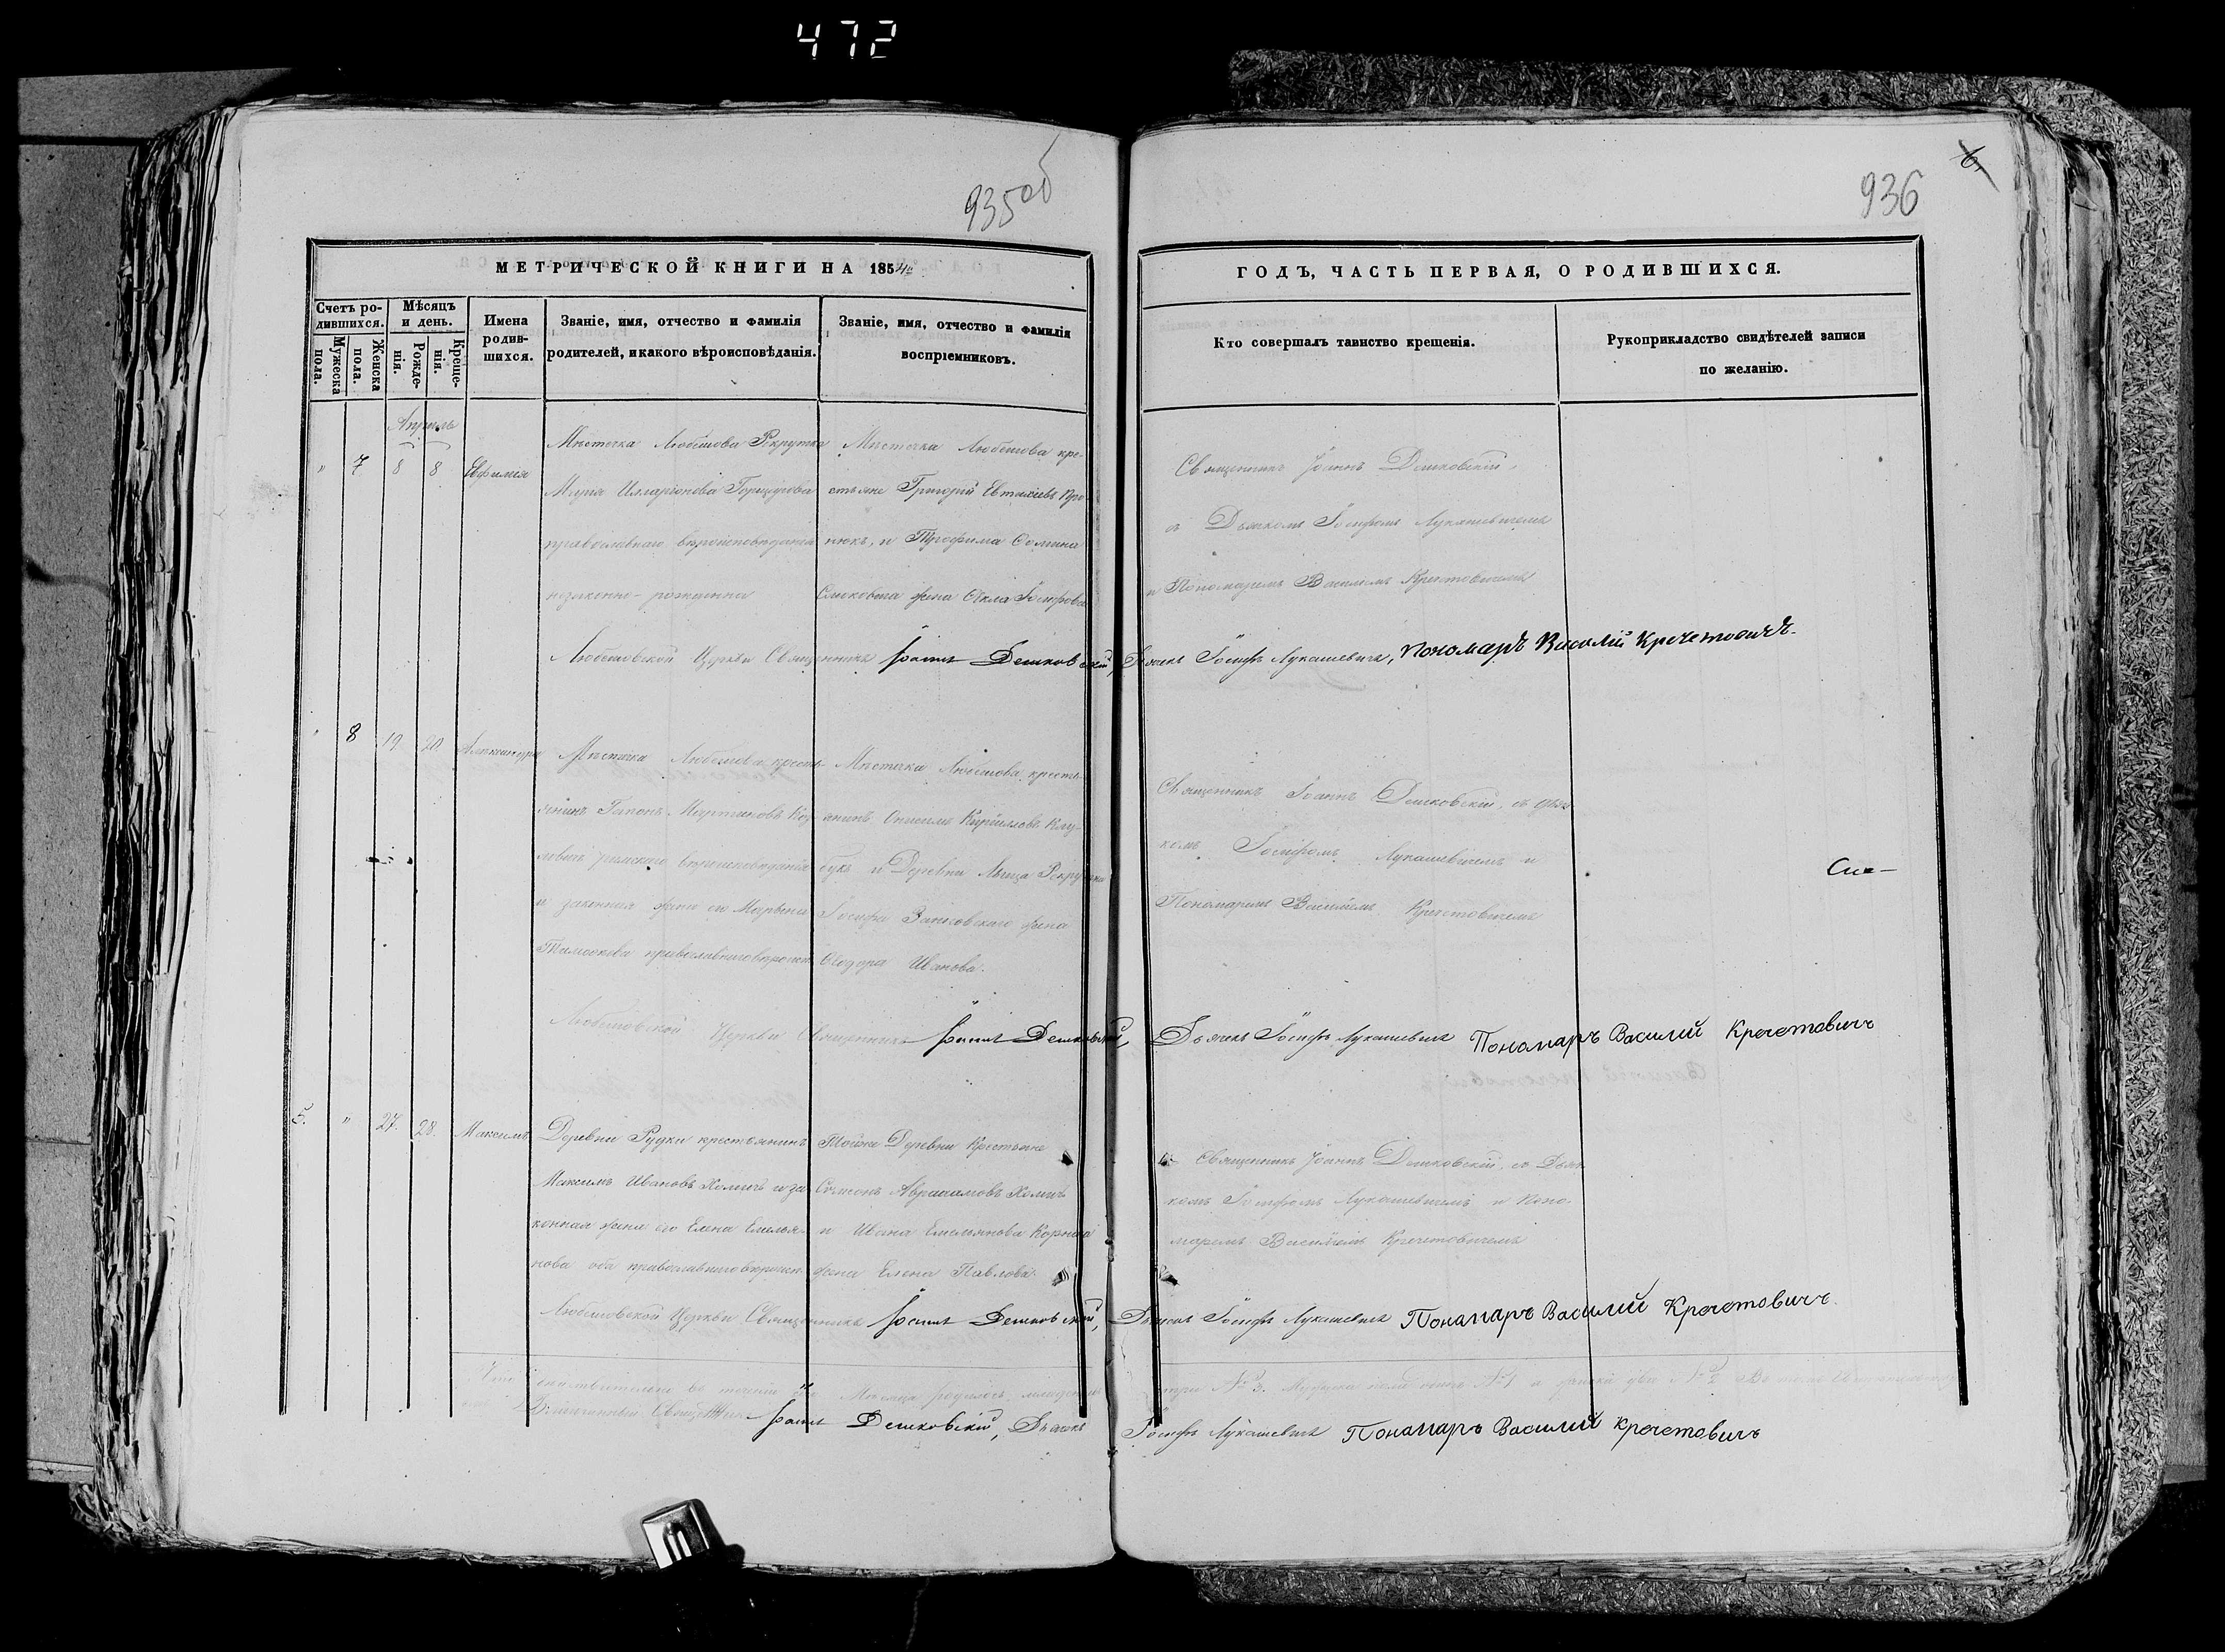 472
935об
936
6
МЕТРИЧЕСКОЙ КНИГИ НА 1854
ГОДЪ, ЧАСТЬ ПЕРВАЯ, О РОДИВШИХСЯ.
Счетъ родившихся.
Мужеска пола.
Женска пола.
Мѣсяцъ и день.
Рожденія.
Крещенія.
Имена родившихся.
Званіе, имя, отчество и фамилія родителей, и какого вѣроисповѣданія.
Званіе, имя, отчество и фамилія воспріемниковъ.
Кто совершалъ таинство крещенія.
Рукоприкладство свидѣтелей записи по желанію.
Апрѣль
" 7 8 8 Евфимія
Мѣстечка Любешова Рекрутка
Илларіонова
православнаго вѣроисповѣданія
незаконно-рожденна
Мѣстечка Любешова кре-
стьяне Григорій Евтихіевъ
и Трофима
жена Ѳекла Іосифова
Священникъ Іоаннъ Дешковскій,
съ Дьячкомъ Іосифомъ Лукашевичемъ
и Пономаремъ Василіемъ Кречетовичемъ
Любешовской Церкви Священникъ Іоаннъ Дешковскій, Дьячекъ Іосифъ Лукашевичъ, Пономаръ Василій Кречетовичъ.
" 8 19 20 Александра
Мѣстечка Любешова кресть-
янинъ Гапонъ Мартиновъ
римскаго вѣроисповѣданія
и законная жена его Марьяна
православнаго
Мѣстечка Любешова кресть-
янинъ Онисимъ Кирилловъ Клу-
букъ и Деревни
Іосифа жена
Ѳеодора Иванова.
Священникъ Іоаннъ Дешковскій, съ Дьяч-
комъ Іосифомъ Лукашевичемъ и
Пономаремъ Василіемъ Кречетовичемъ
Любешовской Церкви Священникъ Іоаннъ Дешковскій, Дьячекъ Іосифъ Лукашевичъ Пономаръ Василий Кречетовичъ
5. " 27. 28. Максимъ
Деревни Рудки крестьянинъ
Максимъ Ивановъ Хомичъ и за-
конная жена его Елена Емелья-
нова оба православнаго вѣроисп.
Тойже Деревни Крестьяне
Симеонъ Авраамовъ Хомичъ
и Ивана Емельянова
жена Елена Павлова.
Священникъ Іоаннъ Дешковскій, съ Дьяч-
комъ Іосифомъ Лукашевичемъ и Поно-
маремъ Василіемъ Кречетовичемъ
Любешовской Церкви Священникъ Іоаннъ Дешковскій, Дьячекъ Іосифъ Лукашевичъ Пономаръ Василий Кречетовичъ.
Что дѣйствительно въ теченіи Мѣсяца родилось младенцевъ три № 3. Мужеска пола № 1 а женска два № 2
Священникъ Іоаннъ Дешковскій, Дьячекъ Іосифъ Лукашевичъ Пономаръ Василий Кречетовичъ